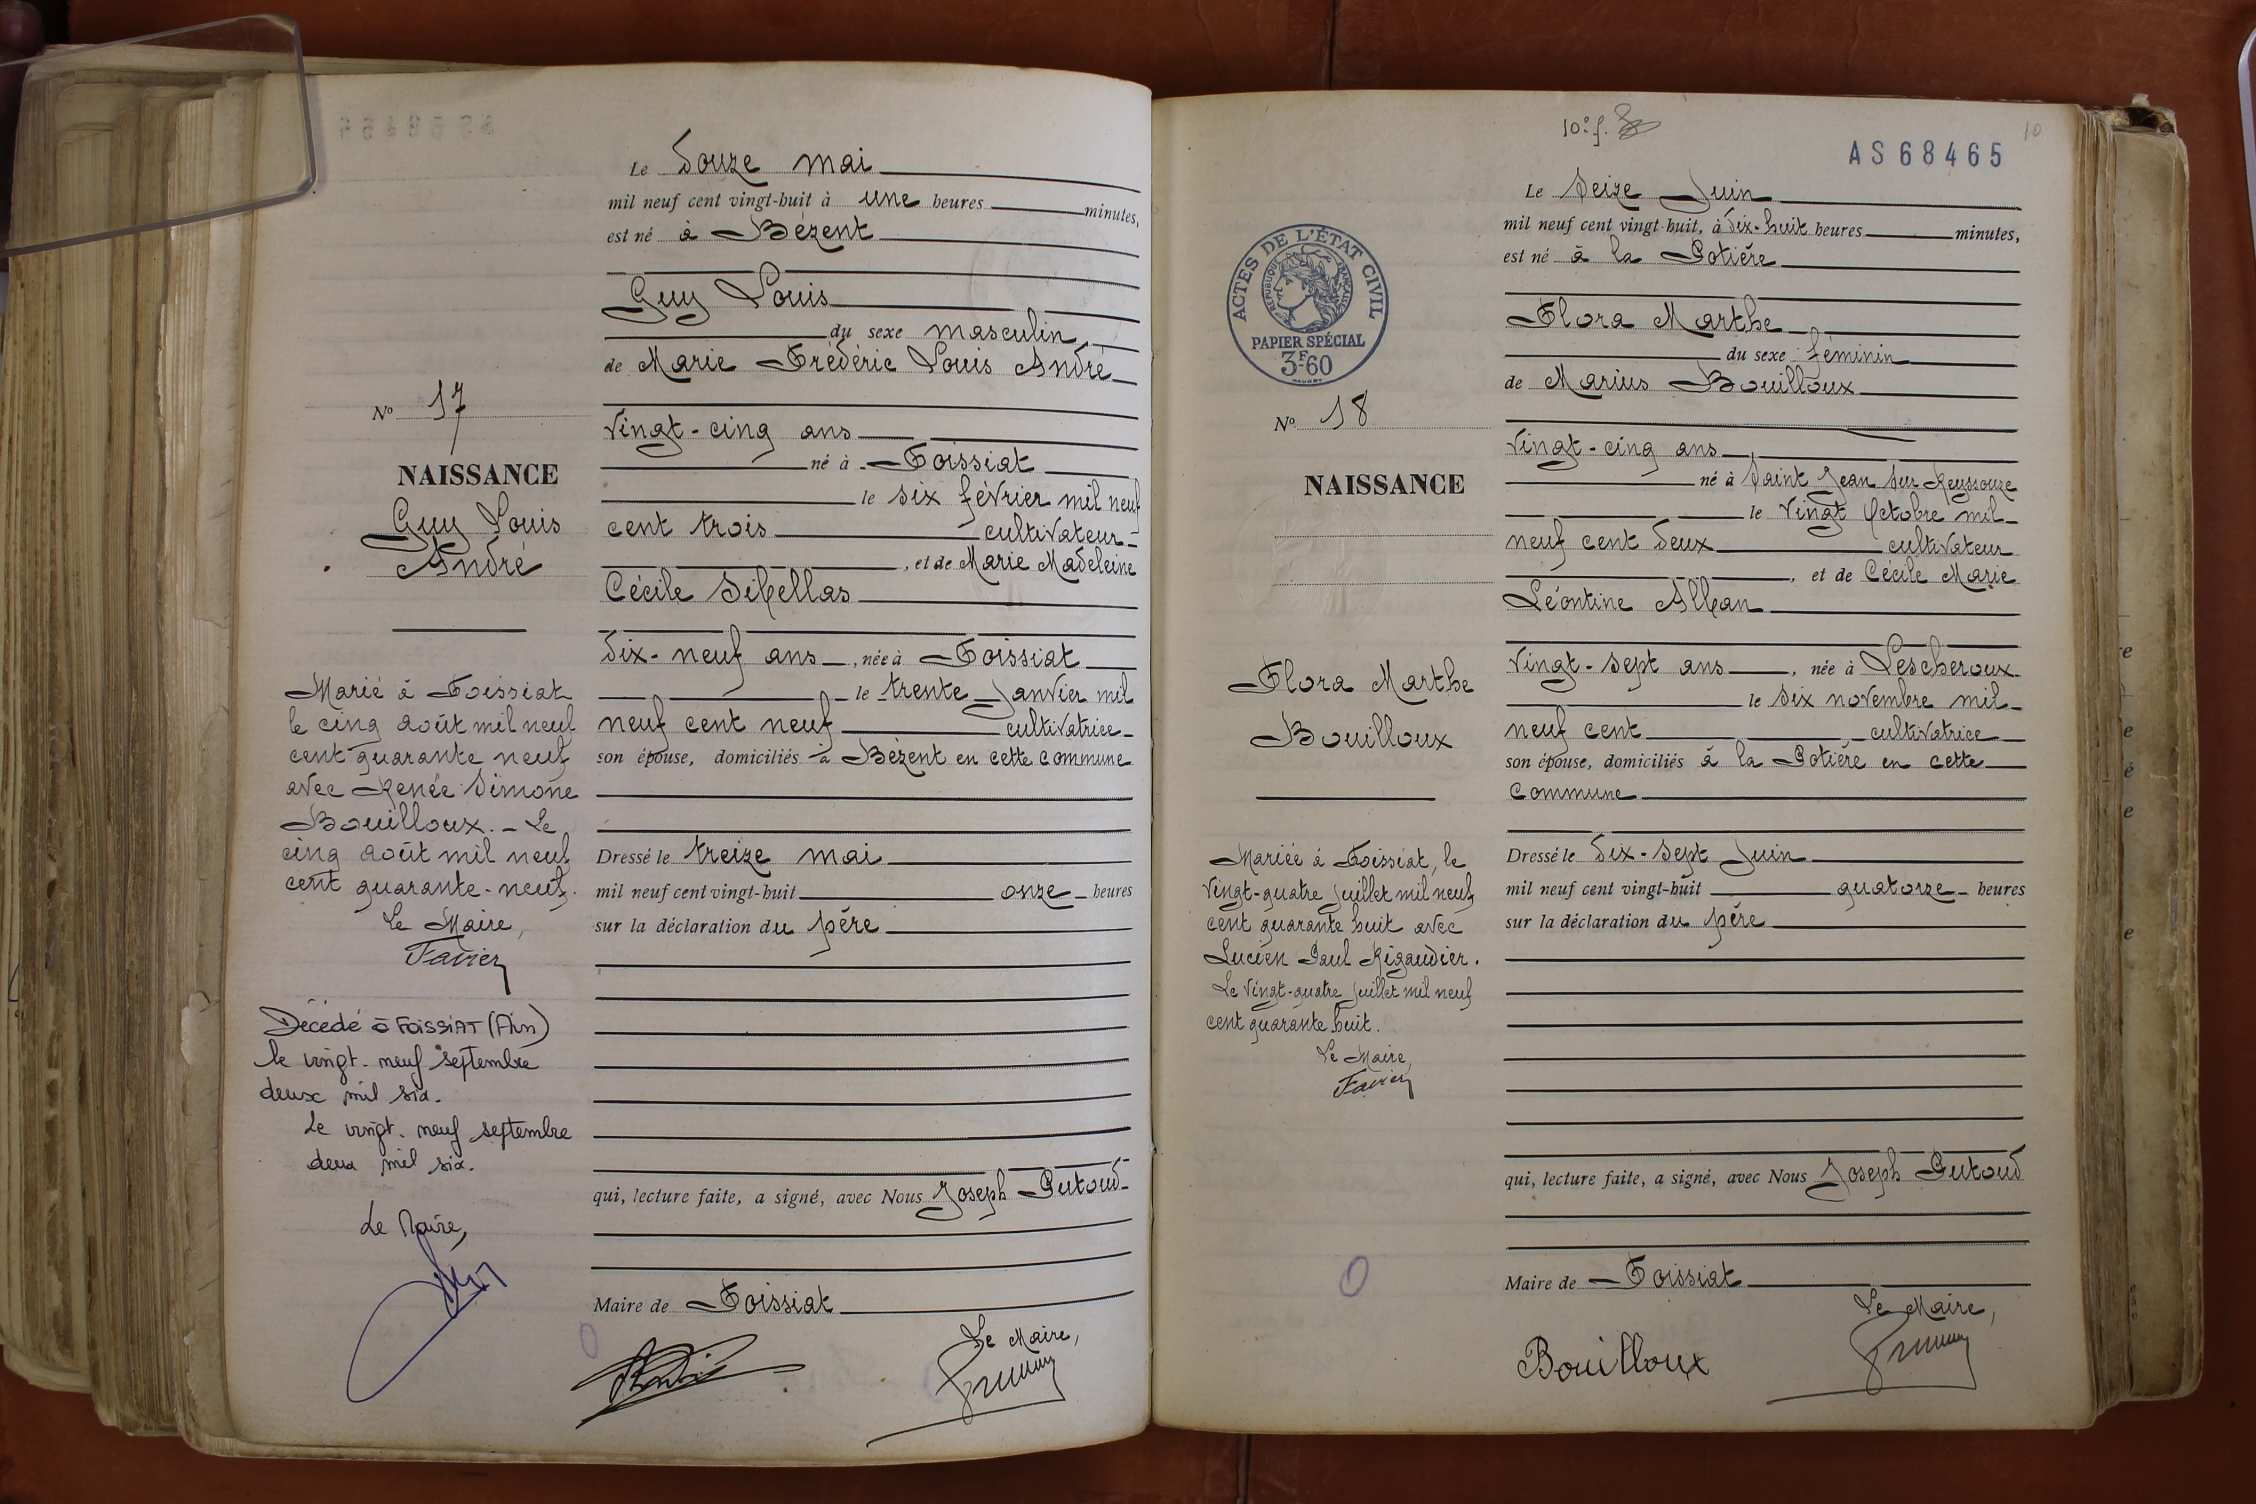 Le Douze mai
mil neuf cent vingt-huit à une heures minutes,
est né à Bézent
Guy Louis
du sexe masculin
de Marie Frédéric Louis André
Vingt-cinq ans
né à Foissiat
le six février mil neuf
cent trois cultivateur
, et de Marie Madeleine
Cécile Sibellas
Dix-neuf ans, née à Foissiat
le trente Janvier mil
neuf cent neuf cultivatrice
son épouse, domiciliés à Bézent en cette commune
Dressé le treize mai
mil neuf cent vingt-huit onze heures
sur la déclaration du père
qui, lecture faite, a signé, avec Nous Joseph Putoud
Maire de Foissiat
Le Maire,
No 17
NAISSANCE
Guy Louis
André
Marié à Foissiat
le cinq août mil neuf
cent quarante neuf
avec Renée Simone
Bouilloux. - Le
cinq août mil neuf
cent quarante-neuf.
Le Maire,
Favier
Décédé à FOISSIAT (Ain)
le vingt-neuf septembre
deux mil six.
Le vingt-neuf septembre
deux mil six.
Le Maire,
10e f.
10
AS68465
Le Seize Juin
mil neuf cent vingt-huit, à Dix-huit heures minutes,
est né à la Potière
Flora Marthe
du sexe féminin
de Marius Bouilloux
Vingt-cinq ans
né à Saint Jean sur Reyssouze
le Vingt Octobre mil
neuf cent Deux cultivateur
, et de Cécile Marie
Léontine Alban
Vingt-sept ans, née à Lescheroux
le six novembre mil
neuf cent cultivatrice
son épouse, domiciliés à la Potière en cette
commune
Dressé le Dix-sept Juin
mil neuf cent vingt-huit quatorze heures
sur la déclaration du père
qui, lecture faite, a signé, avec Nous Joseph Putoud
Maire de Foissiat
Le Maire,
Bouilloux
ACTES DE L'ÉTAT CIVIL
RÉPUBLIQUE FRANÇAISE
PAPIER SPÉCIAL
3F60
No 18
NAISSANCE
Flora Marthe
Bouilloux
Mariée à Foissiat, le
Vingt-quatre Juillet mil neuf
cent quarante huit avec
Lucien Paul Rigaudier.
Le Vingt-quatre Juillet mil neuf
cent quarante huit.
Le Maire,
Favier